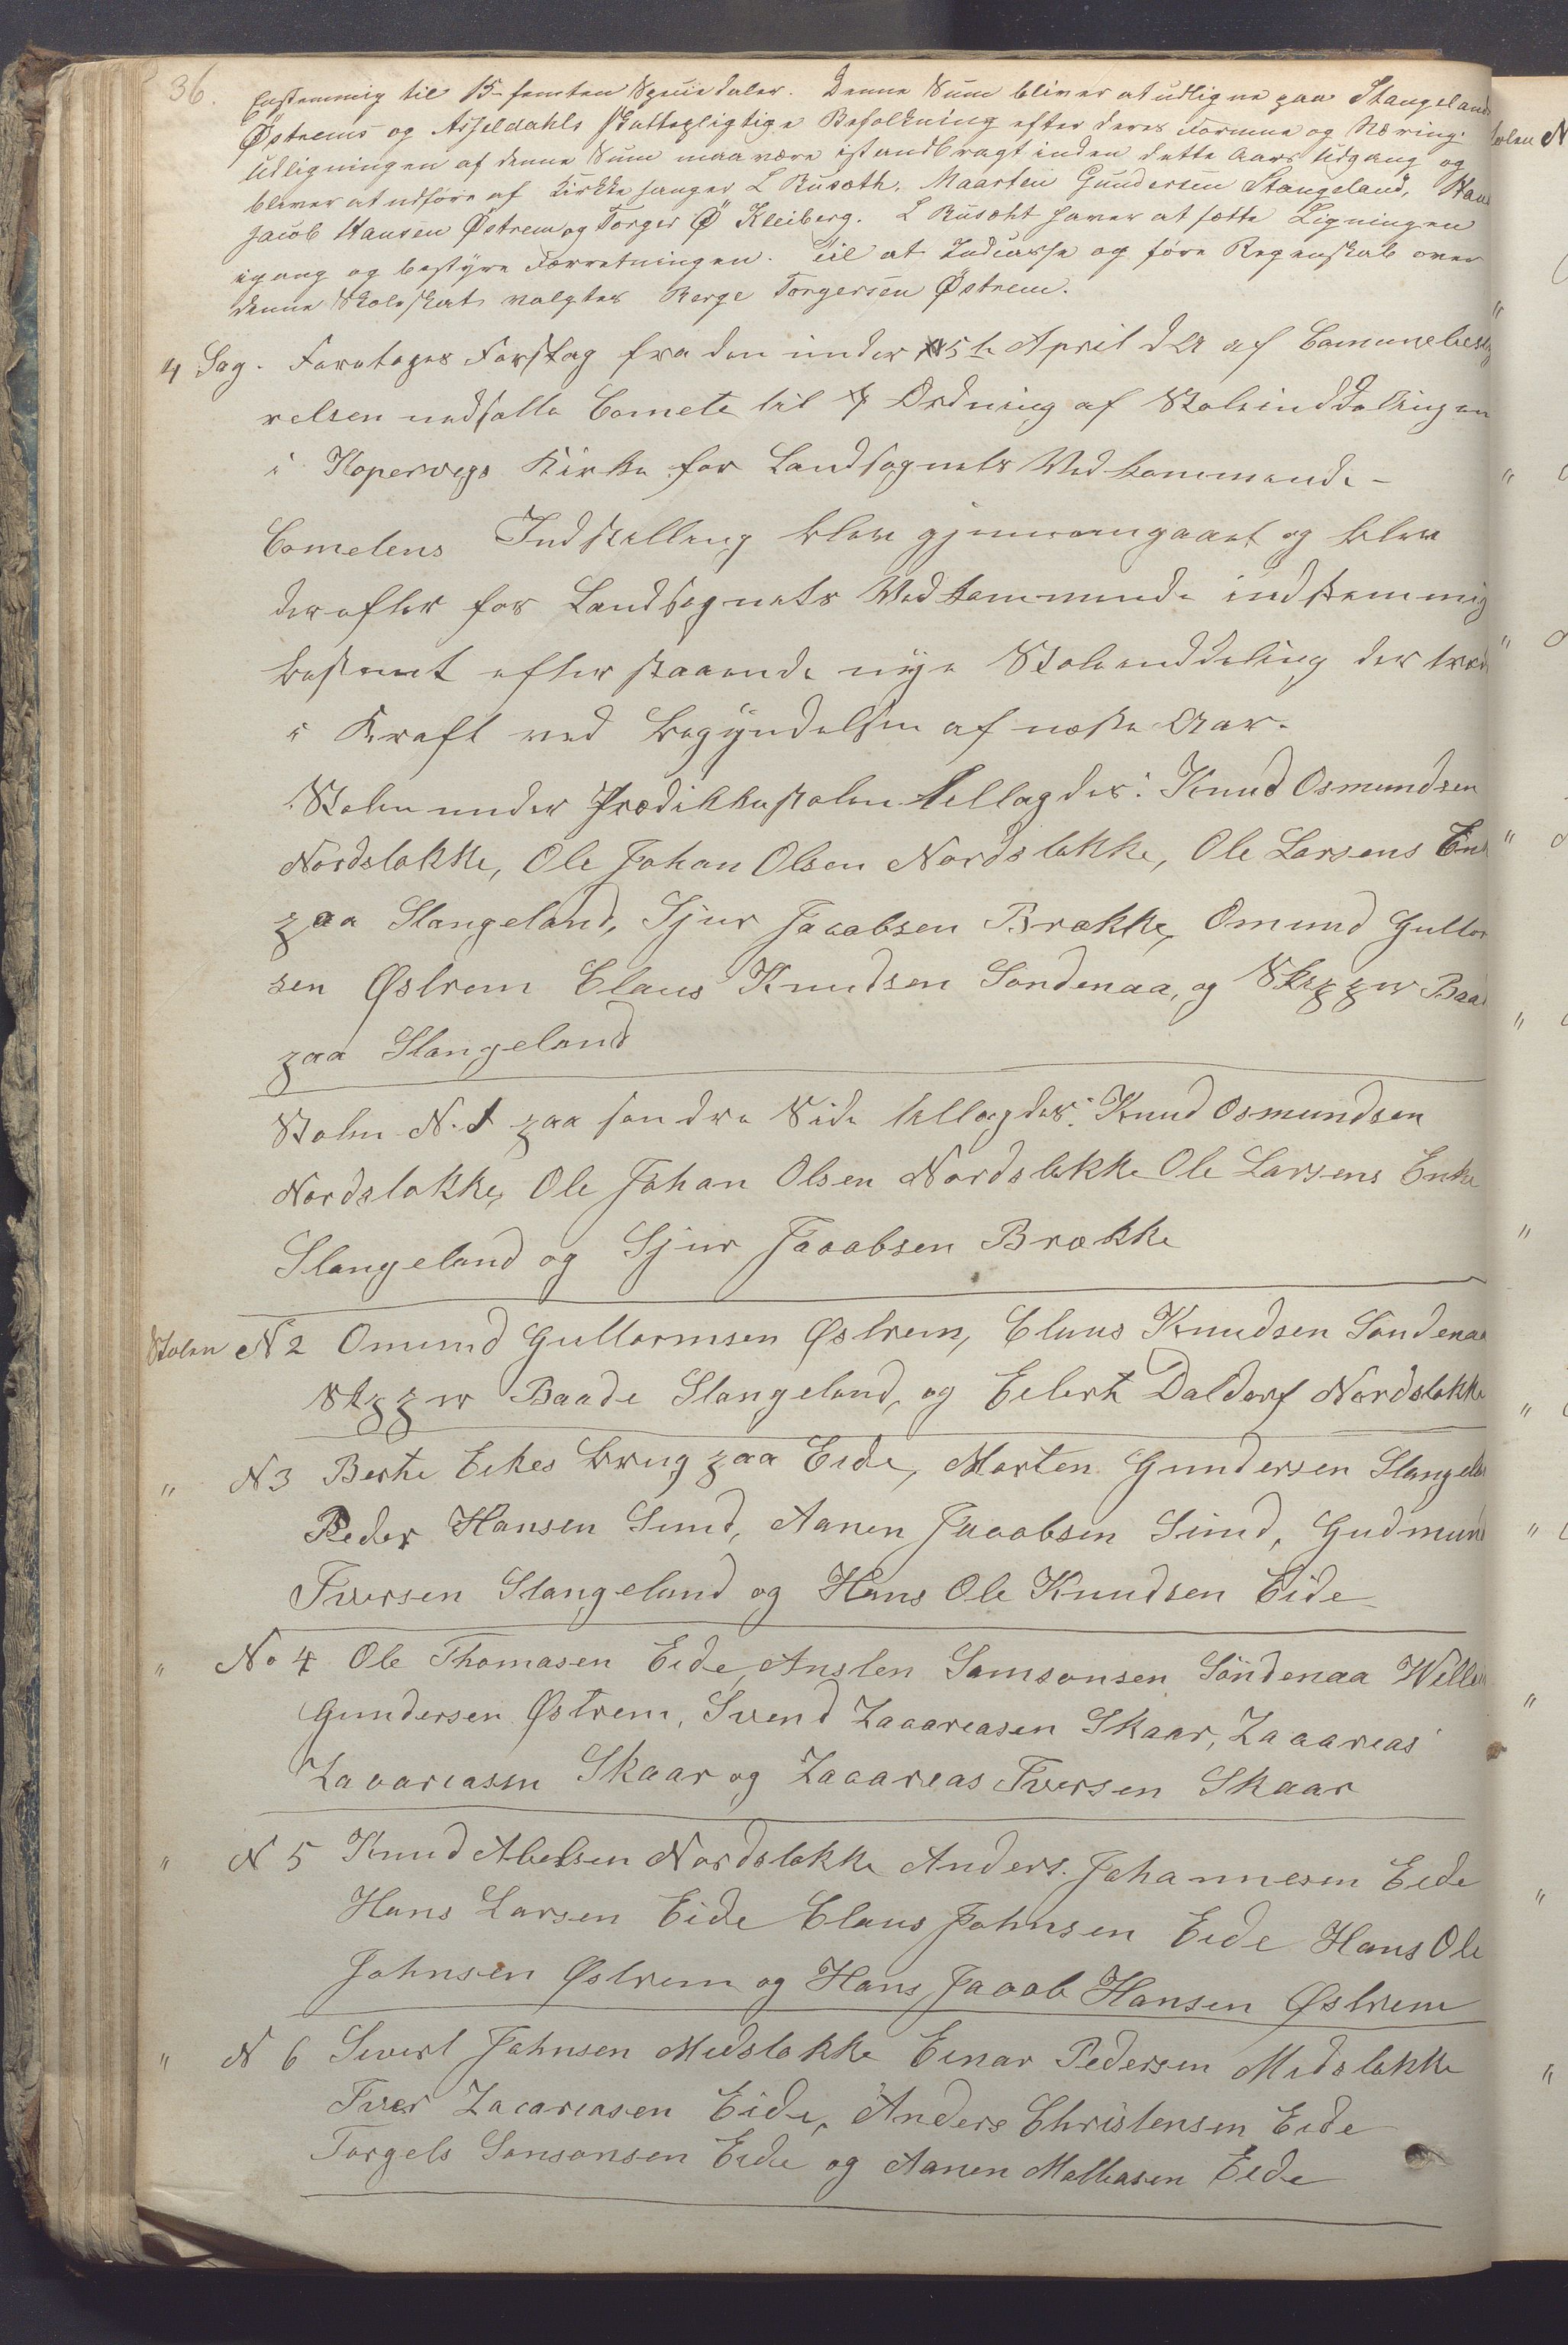 36.
Eenstemmig til 15 – femten Speciedaler. Denne Sum bliver at udligne paa Stangeland
Østrems og Asseldahls skattepligtige Befolkning efter deres Formue og Næring.
Udligningen af denne Sum maa være istandbragt inden dette Aars Udgang og
bliver at udføre af Kirkesanger L Rusøth, Maarten Gundersen Stangeland, Hans
Jacob Hansen Østrem og Torger Ø Kleiberg. L Rusøht haver at sætte Ligningen
igang og bestyre Forretningen. Til at Indcasse og føre Regenskab over
denne Skoleskat valgtes Berge Torgersen Østrem.
4 Sag. Foretoges Forslag fra den under 5te April d A af Comunebesty
relsen nedsatte Comete til Ordning af Stoleinddelingen
i Kopervigs Kirke for Landsognets Vedkommende –
Cometens Indstilling blev gjennemgaaet og blev
derefter for Landsognets Vedkommende indstemmig
bestemt efterstaaende nye Stoleinddeling der træd
i Kraft ved Begyndelsen af næste Aar.
Stolen under Prædikkestolen tillagdes: Knud Osmundsen
Nordstokke, Ole Johan Olsen Nordstokke, Ole Larsens Enk
paa Stangeland, Sjur Jacobsen Brække, Omund Guttor
sen Østrem Claus Knudsen Søndenaa, og Skipper Baad
paa Stangeland
Stolen N. 1 paa søndre Side tillagdes: Knud Osmundsen
Nordstokke, Ole Johan Olsen Nordstokke Ole Larsens Enke
Stangeland og Sjur Jacobsen Brække
Stolen N 2 Omund Guttormsen Østrem, Claus Knudsen Søndenaa
Skipper Baade Stangeland, og Eilert Daldorf Nordstokke
" N 3 Berte Eikes brug paa Eide, Morten Gundersen Stangeland
Peder Hansen Sund, Aanen Jacobsen Sund, Gudmund
Iversen Stangeland og Hans Ole Knudsen Eide
" No 4 Ole Thomasen Eide, Anslen Samsonsen Søndenaa Willi
Gundersen Østrem, Svend Zacariasen Skaar, Zacarias
Zacariasen Skaar og Zacarias Iversen Skaar
" N 5 Knud Abelsen Nordstokke Anders Johannesen Eide
Hans Larsen Eide Claus Johnsen Eide Hans Ole
Johnsen Østrem og Hans Jacob Hansen Østrem
" N 6 Sivert Johnsen Midstokke Einar Pedersen Midstokke
Iver Zacariasen Eide, Anders Christensen Eide
Torgels Sonsonsen Eide og Aanen Mathiasen Eide